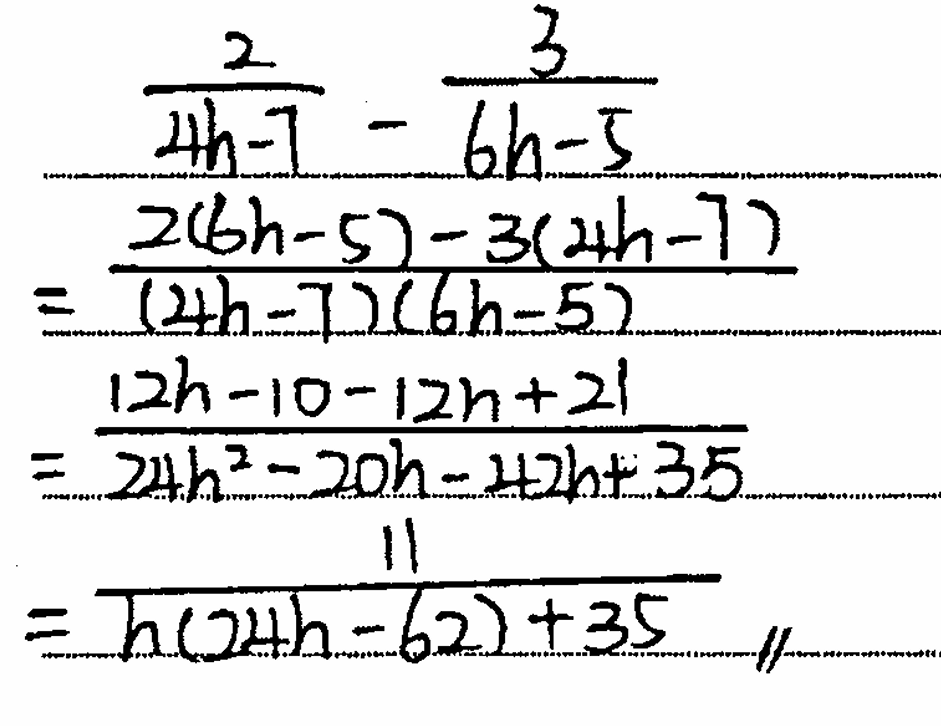 2/(4h-7) - 3/(6h-5)
= (2(6h-5)-3(4h-7))/((4h-7)(6h-5))
= (12h-10-12h+21)/(24h²-20h-42h+35)
= 11/(h(24h-62)+35) //